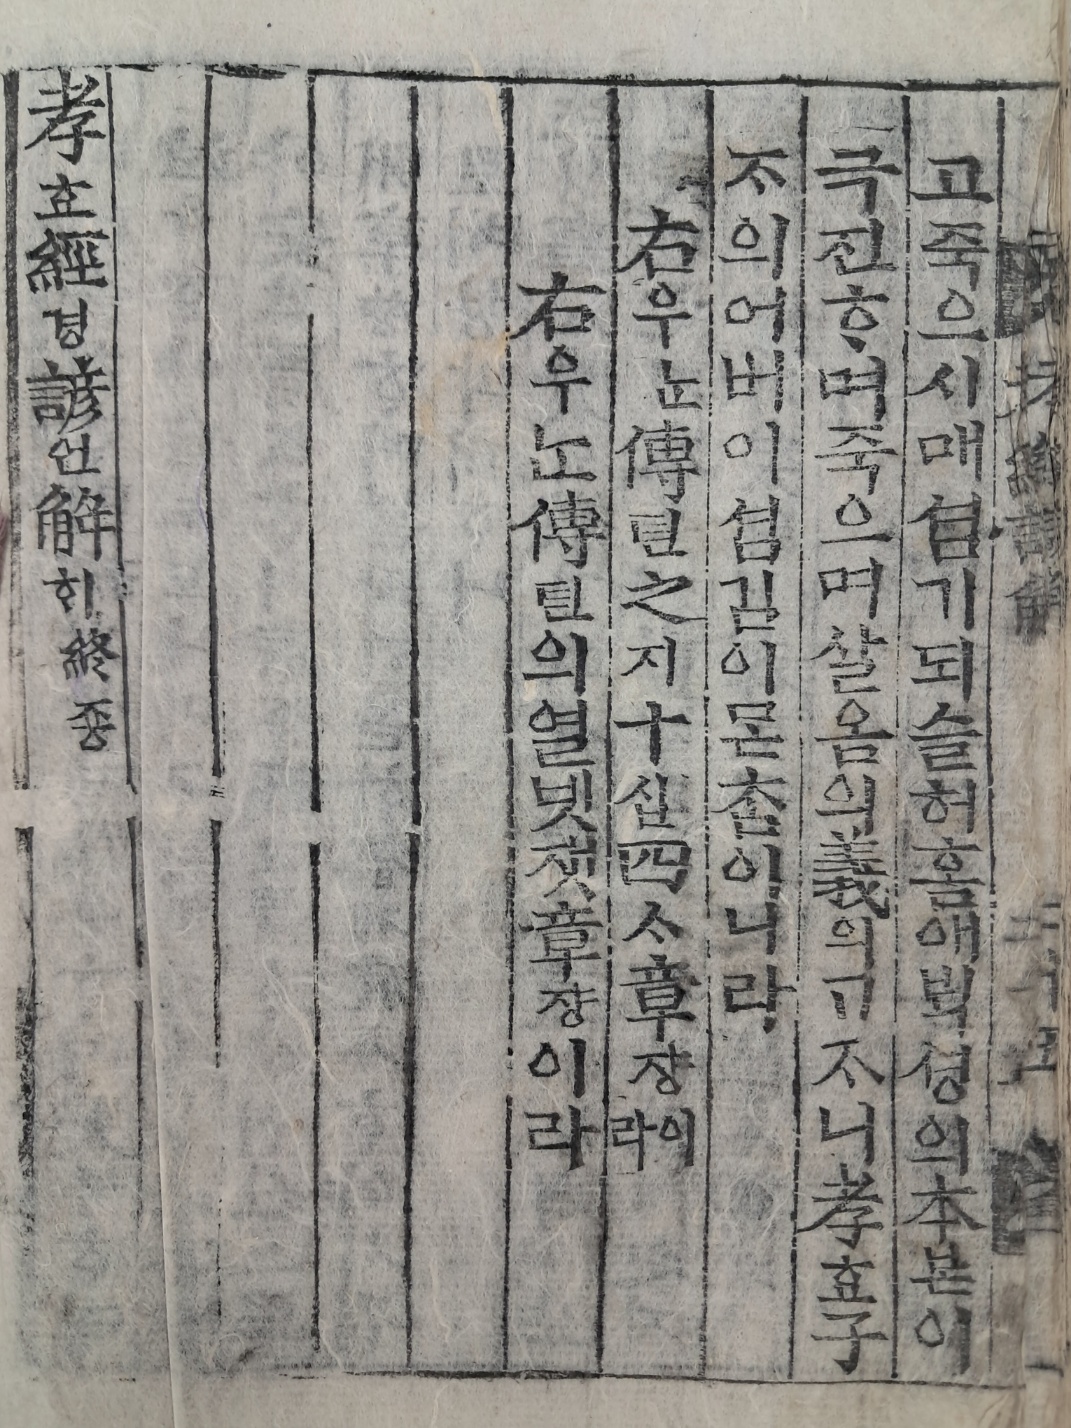 고죽으시매셤기되슬허홈애ᄇᆡᆨ셩의本본이
극진ᄒᆞ며죽으며살옴의義의ᄀᆞᄌᆞ니孝효子
ᄌᆞ의어버이셤김이ᄆᆞᆮᄎᆞᆫ이니라
右우ᄂᆞᆫ傳뎐之지十십四ᄉᆞ章쟝이라
右우ᄂᆞᆫ傳뎐의열넷잿章쟝이라
孝효經경諺언解ᄒᆡ終죵